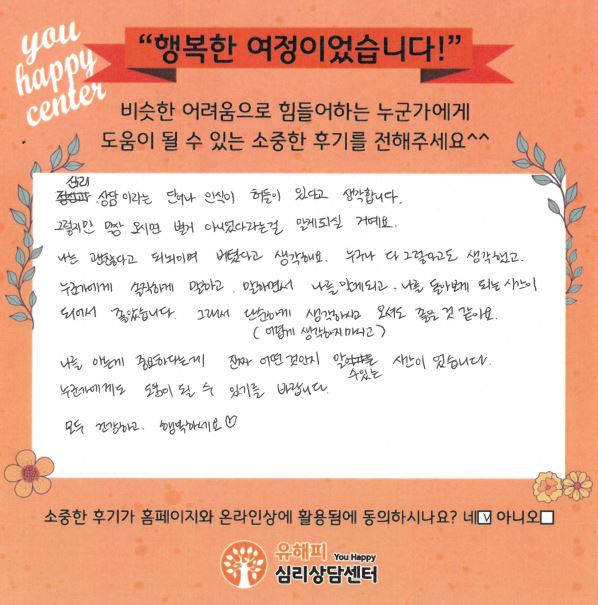 you
happy
center
“행복한 여정이었습니다!”
비슷한 어려움으로 힘들어하는 누군가에게
도움이 될 수 있는 소중한 후기를 전해주세요^^
심리
상담이라는 단어나 인식이 허들이 있다고 생각합니다.
그렇지만 막상 오시면 별거 아니었다라는걸 알게되실 거예요.
나는 괜찮다고 되뇌이며 버텼다고 생각해요. 누구나 다 그렇다고도 생각했고.
누군가에게 솔직하게 말하고, 말하면서 나를 알게되고. 나를 돌아보게 되는 시간이
되어서 좋았습니다. 그래서 단순하게 생각하시고 오셔도 좋을 것 같아요.
(어떻게 생각하지마시고)
나를 아는게 중요하다는게 진짜 어떤것인지 알 수있는 시간이 었습니다.
누군가에게도 도움이 될 수 있기를 바랍니다.
모두 건강하고. 행복하세요♡
소중한 후기가 홈페이지와 온라인상에 활용됨에 동의하시나요? 네☑ 아니오☐
유해피 You Happy
심리상담센터